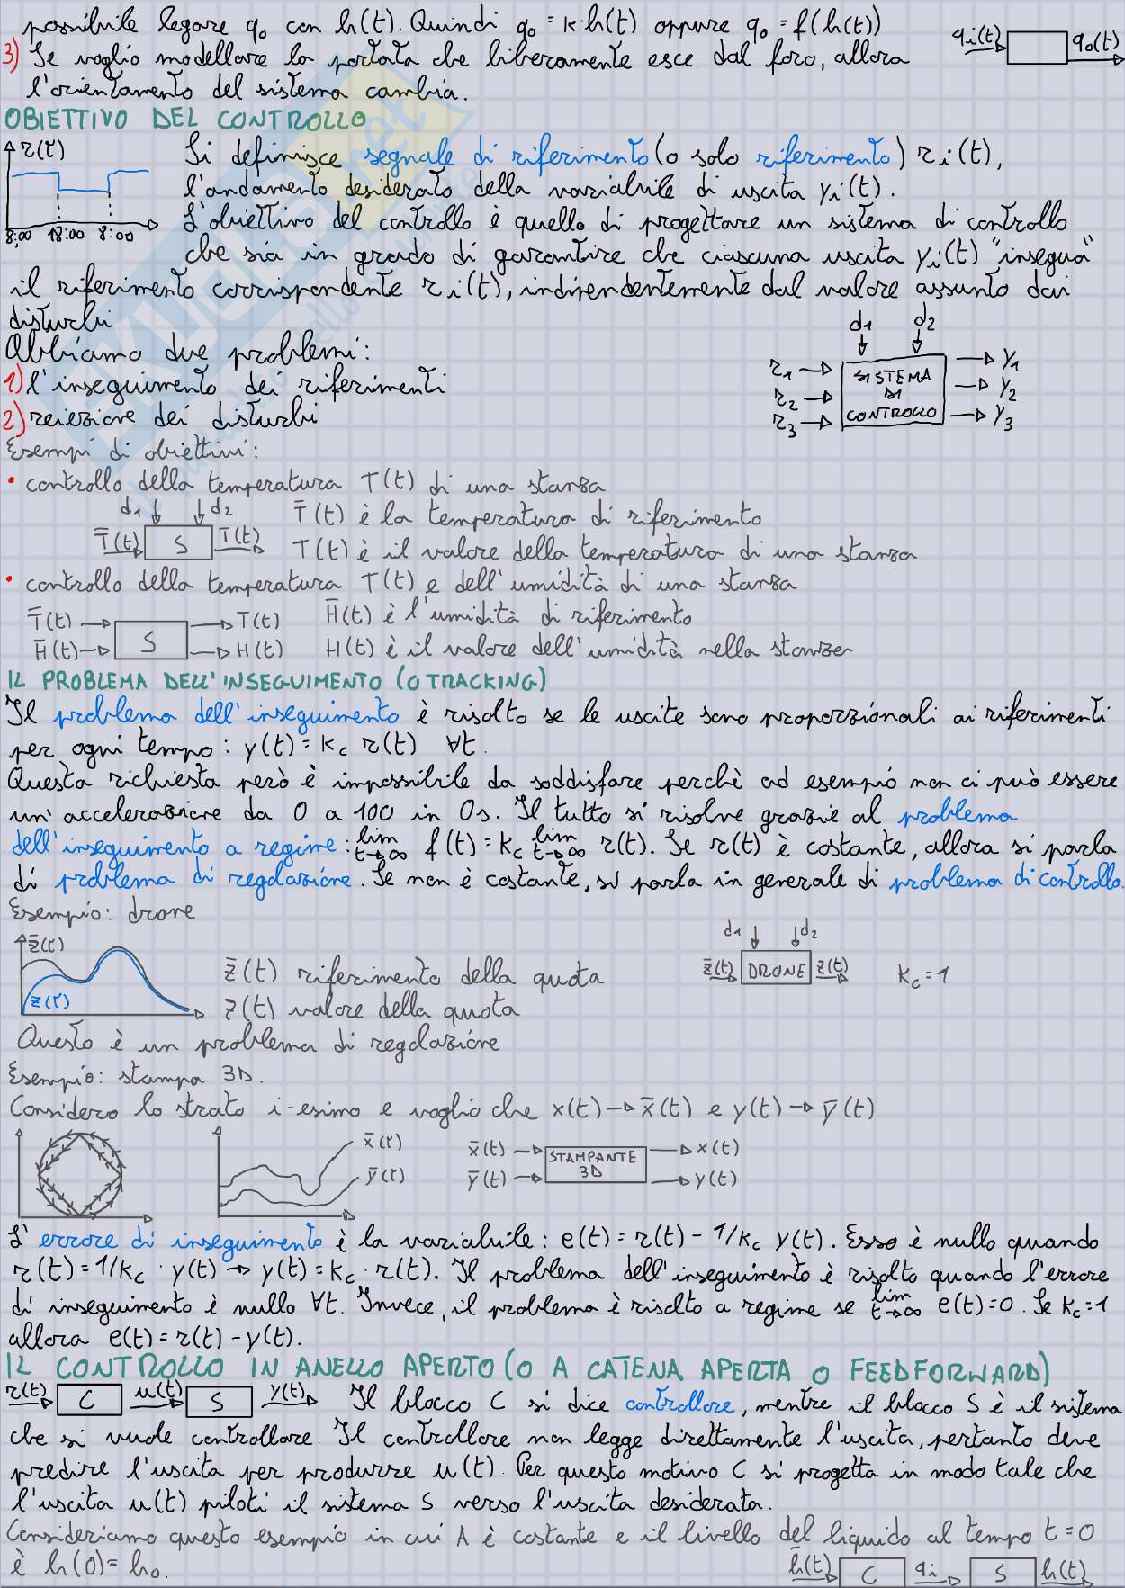 possibile legare q₀ con h(t). Quindi q₀ = k·h(t) oppure q₀ = f(h(t))
qᵢ(t) q₀(t)
3) Se voglio modellare la portata che liberamente esce dal foro, allora
l'orientamento del sistema cambia.
OBIETTIVO DEL CONTROLLO
r(t)
8:00 18:00 8:00
Si definisce segnale di riferimento (o solo riferimento) rᵢ(t),
l'andamento desiderato della variabile di uscita yᵢ(t).
L'obiettivo del controllo è quello di progettare un sistema di controllo
che sia in grado di garantire che ciascuna uscita yᵢ(t) "insegua"
il riferimento corrispondente rᵢ(t), indipendentemente dal valore assunto dai
disturbi
Abbiamo due problemi:
1) l'inseguimento dei riferimenti
2) reiezione dei disturbi
d₁ d₂
r₁ r₂ r₃
SISTEMA
DI
CONTROLLO
y₁ y₂ y₃
Esempi di obiettivi:
• controllo della temperatura T(t) di una stanza
d₁ d₂
T̄(t) S T(t)
T̄(t) è la temperatura di riferimento
T(t) è il valore della temperatura di una stanza
• controllo della temperatura T(t) e dell'umidità di una stanza
T̄(t) T(t) H̄(t) è l'umidità di riferimento
H̄(t) S H(t) H(t) è il valore dell'umidità nella stanza
IL PROBLEMA DELL'INSEGUIMENTO (O TRACKING)
Il problema dell'inseguimento è risolto se le uscite sono proporzionali ai riferimenti
per ogni tempo: y(t) = kc r(t) ∀t.
Questa richiesta però è impossibile da soddisfare perchè ad esempio non ci può essere
un'accelerazione da 0 a 100 in 0s. Il tutto si risolve grazie al problema
dell'inseguimento a regime: lim t→∞ f(t) = kc lim t→∞ r(t). Se r(t) è costante, allora si parla
di problema di regolazione. Se non è costante, si parla in generale di problema di controllo.
Esempio: drone
z̄(t)
z(t)
z̄(t) riferimento della quota
z(t) valore della quota
d₁ d₂
z̄(t) DRONE z(t)
kc = 1
Questo è un problema di regolazione
Esempio: stampa 3D.
Considero lo strato i-esimo e voglio che x(t) → x̄(t) e y(t) → ȳ(t)
x̄(t)
ȳ(t)
x̄(t) STAMPANTE x(t)
ȳ(t) 3D y(t)
L'errore di inseguimento è la variabile: e(t) = r(t) - 1/kc y(t). Esso è nullo quando
r(t) = 1/kc · y(t) → y(t) = kc · r(t). Il problema dell'inseguimento è risolto quando l'errore
di inseguimento è nullo ∀t. Invece, il problema è risolto a regime se lim t→∞ e(t) = 0. Se kc = 1
allora e(t) = r(t) - y(t).
IL CONTROLLO IN ANELLO APERTO (O A CATENA APERTA O FEEDFORWARD)
r(t) C u(t) S y(t) Il blocco C si dice controllore, mentre il blocco S è il sistema
che si vuole controllare. Il controllore non legge direttamente l'uscita, pertanto deve
predire l'uscita per produrre u(t). Per questo motivo C si progetta in modo tale che
l'uscita u(t) piloti il sistema S verso l'uscita desiderata.
Consideriamo questo esempio in cui A è costante e il livello del liquido al tempo t=0
è h(0) = h₀.
h̄(t) C qᵢ S h(t)